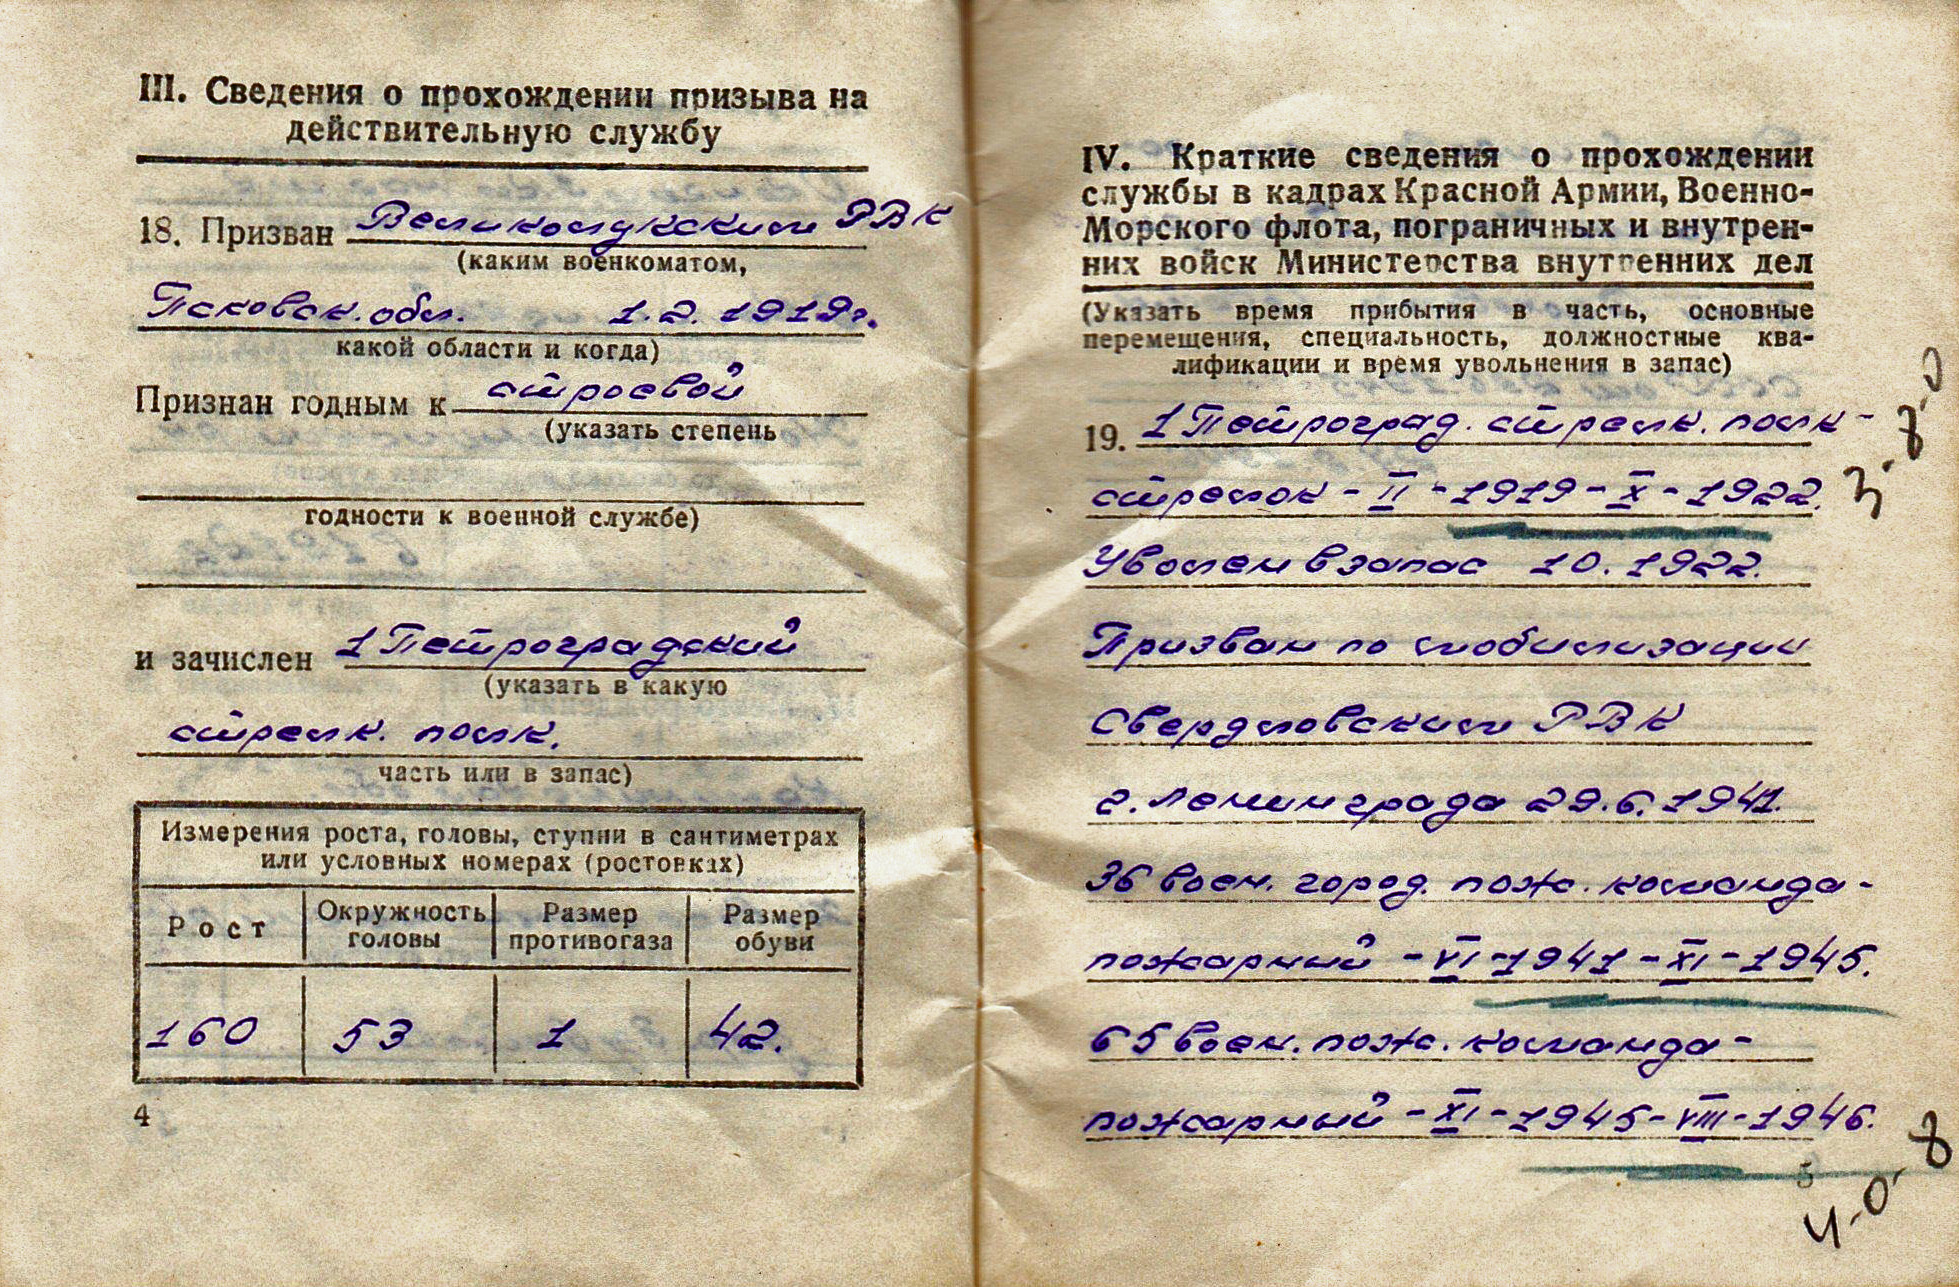 III. Сведения о прохождении призыва на
действительную службу
18. Призван Великолукским РВК
(каким военкоматом,
Псковск. обл. 1.2.1919г.
какой области и когда)
Признан годным к строевой
(указать степень
годности к военной службе)
и зачислен 1 Петроградский
(указать в какую
стрелк. полк.
часть или в запас)
Измерения роста, головы, ступни в сантиметрах
или условных номерах (ростовках)
Рост Окружность головы Размер противогаза Размер обуви
160 53 1 42.
4
IV. Краткие сведения о прохождении
службы в кадрах Красной Армии, Военно-
Морского флота, пограничных и внутрен-
них войск Министерства внутренних дел
(Указать время прибытия в часть, основные
перемещения, специальность, должностные ква-
лификации и время увольнения в запас)
19. 1 Петроград. стрелк. полк -
стрелок - II - 1919 - X - 1922.
3-8-0
Уволен в запас 10.1922.
Призван по мобилизации
Свердловским РВК
г. Ленинграда 29.6.1941.
36 воен. город. пож. команда -
пожарный - VI - 1941 - XI - 1945.
65 воен. пож. команда -
пожарный - XI - 1945 - VIII - 1946.
5
4-0-8